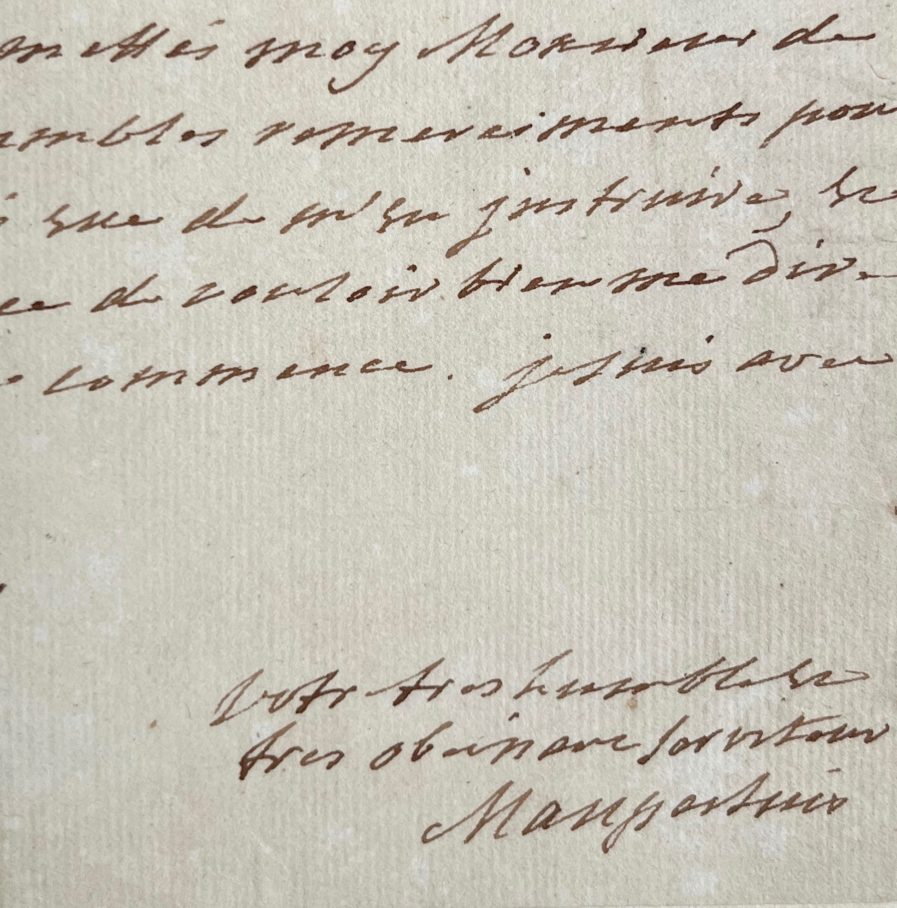 mettés moy Monsieur de
umbles remerciments pour
que de m'en jnstruire, et
ce de vouloir bien me dire
commence. je suis avec
Votr tres humble et
tres obeissant serviteur
Maupertuis